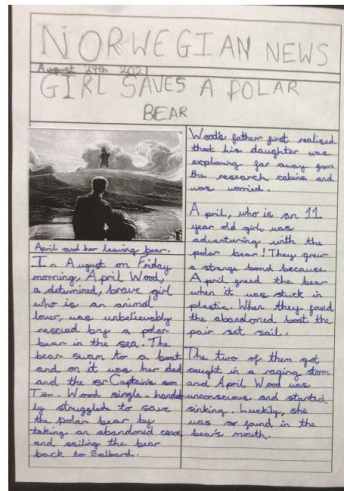 NORWEGIAN NEWS
August 29th 2021
GIRL SAVES A POLAR
BEAR
April and her leaving bear.
In August on Friday
morning, April Wood,
a determined, brave girl
who is an animal
lover, was unbelievably
rescued by a polar
bear in the sea. The
bear swam to a boat
and on it was her dad
and the Captains son
Tor. Wood single-handed
ly struggled to save
the polar bear by
taking an abandoned
and sailing the bear
back to Salbard.
Wood's father first realised
that his daughter was
exploring far away from
the research cabins and
was worried.
April, who is an 11
year old girl, was
adventuring with the
polar bear! They grew
a strange bond because
April freed the bear
when it was stuck in
plastic. When they found
the abandoned boat the
pair set sail.
The two of them got
caught in a raging storm
and April Wood was
unconscious and started
sinking. Luckily, she
was found in the
bear's mouth.